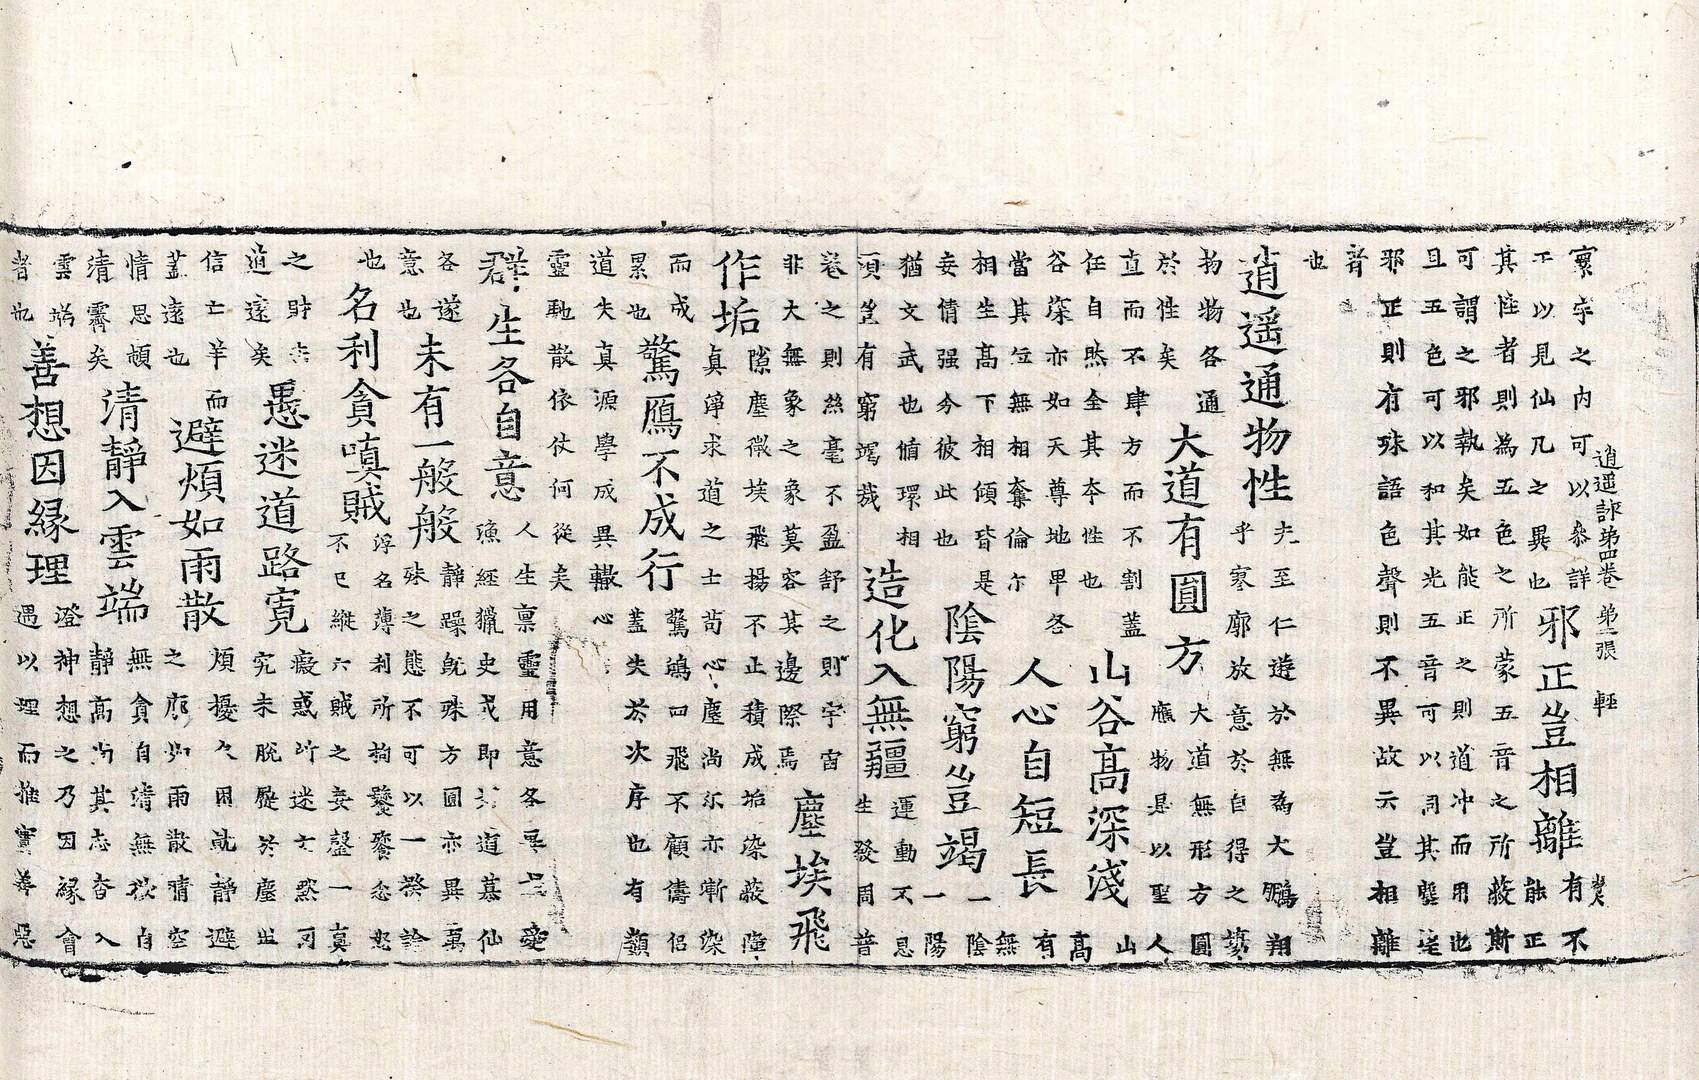 逍遥詠第四卷 第二張 輕
寰宇之內可以叅詳
下以見仙凡之異也
邪正豈相離
有不
能正
其性者則為五色之所蒙五音之所蔽斯
可謂之邪執矣如能正之則道冲而用也
且五色可以和其光五音可以同其塵是
邪正則有殊語色聲則不異故云豈相離
者
也
逍遥通物性
先至仁遊於無為大鵬翔
乎寥廓放意於自得之
物物各通
於性矣
大道有圓方
大道無形方圓
應物是以聖人
直而不肆方而不割蓋
任自然全其本性也
山谷高深淺
山
高
谷深亦如天尊地卑各
當其位無相奪倫尒
人心自短長
有
無
相生高下相傾皆是
妄情强分彼此也
陰陽窮豈竭
一陰
一陽
猶文武也循環相
湏豈有窮竭哉
造化入無疆
運動不息
生發周普
卷之則絲毫不盈舒之則宇宙
非大無象之象莫容其邊際焉
塵埃飛
作垢
隙塵微埃飛揚不正積成垢染蔽障
真淨求道之士苟心塵尚尒亦漸染
而成
累也
驚鴈不成行
驚鴻回飛不顧儔侣
蓋失於次序也有類
道失真源學成異轍心
靈馳散依仗何從矣
群生各自意
人生稟靈用意各異愛
漁經獵史或即道慕仙
各遂
意也
未有一般般
靜躁旣殊方圓亦異萬
殊之態不可以一槩論
也
名利貪嗔賊
浮名薄利所拘饕餮忿怒
不已縱六賊之妄鑿一真
之時去
道遠矣
愚迷道路寬
癡惑所迷
究未脫屣於塵世
信亡羊而
蓋遠也
避煩如雨散
煩擾久困就靜避
之廓如雨散晴空
情思頓
清霽矣
清靜入雲端
無貪自清無欲自
靜高尚其志杳入
雲端
者也
善想因緣理
澄神想之乃因緣會
遇以理而推實善惡